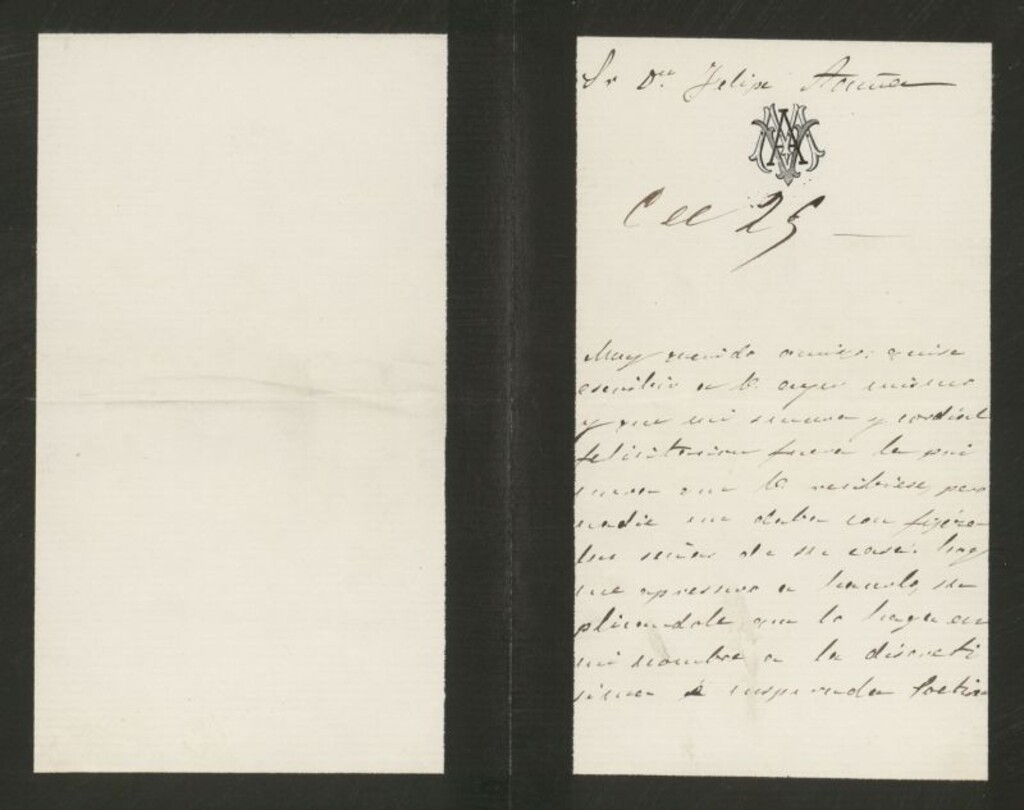 Sr Dn Felipe Acuña
25
Muy querido amigo: quise
escribir a V. ayer mismo
y que mi sincera y cordial
felicitacion fuera la pri
mera que V. recibiese, pero
nadie me daba con fijeza
las señas de su casa. Hoy
me apresuro a hacerlo, su
plicandole que lo haga en
mi nombre a la discreti
sima é inspirada Poetisa